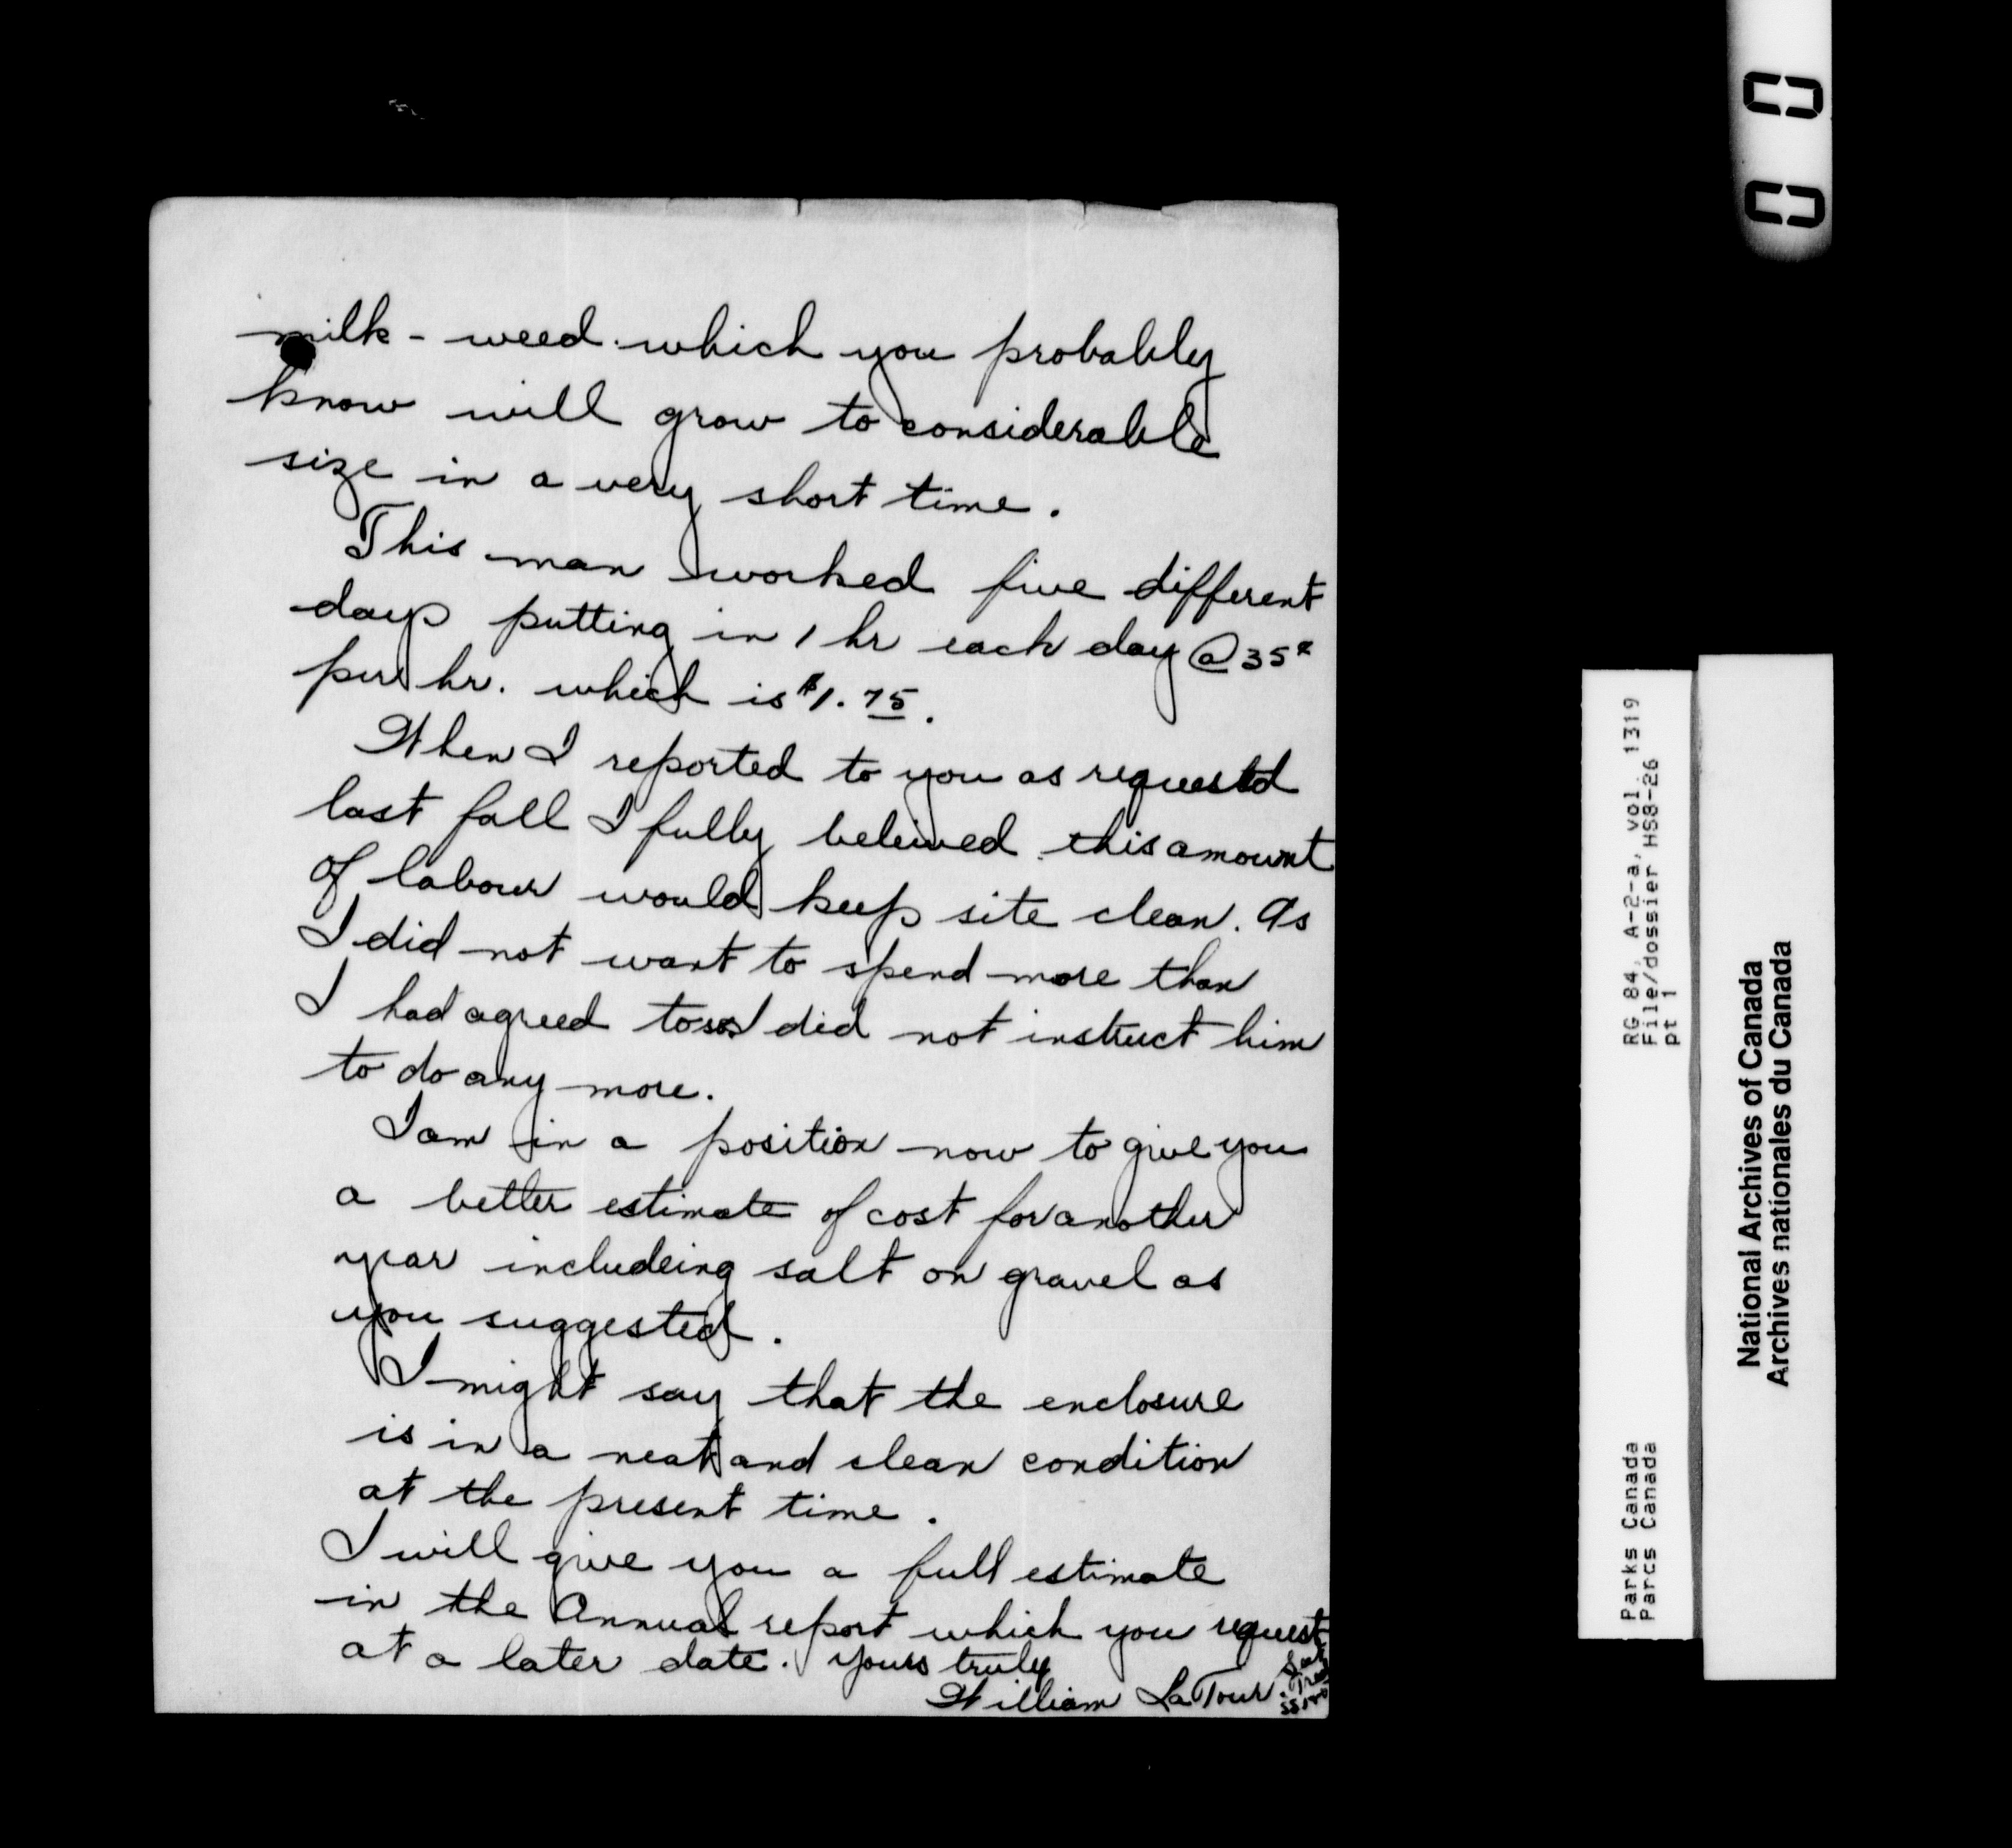 milk - weed which you probably
know will grow to considerable
size in a very short time.
This man worked five different
days putting in 1 hr each day @ 35¢
per hr. which is $1.75.
When I reported to you as requestd
last fall I fully beleived this amount
of labour would keep site clean. As
I did not want to spend more than
I had agreed to so I did not instruct him
to do any more.
I am in a position now to give you
a better estimate of cost for another
year includeing salt on gravel as
you suggested.
I might say that the enclosure
is in a neat and clean condition
at the present time.
I will give you a full estimate
in the Annual report which you request
at a later date. Yours truly
William LaTour. Sec
Treas
RG 84, A-2-a, vol. 1319
File/dossier HS8-26
pt 1
Parks Canada
Parcs Canada
National Archives of Canada
Archives nationales du Canada